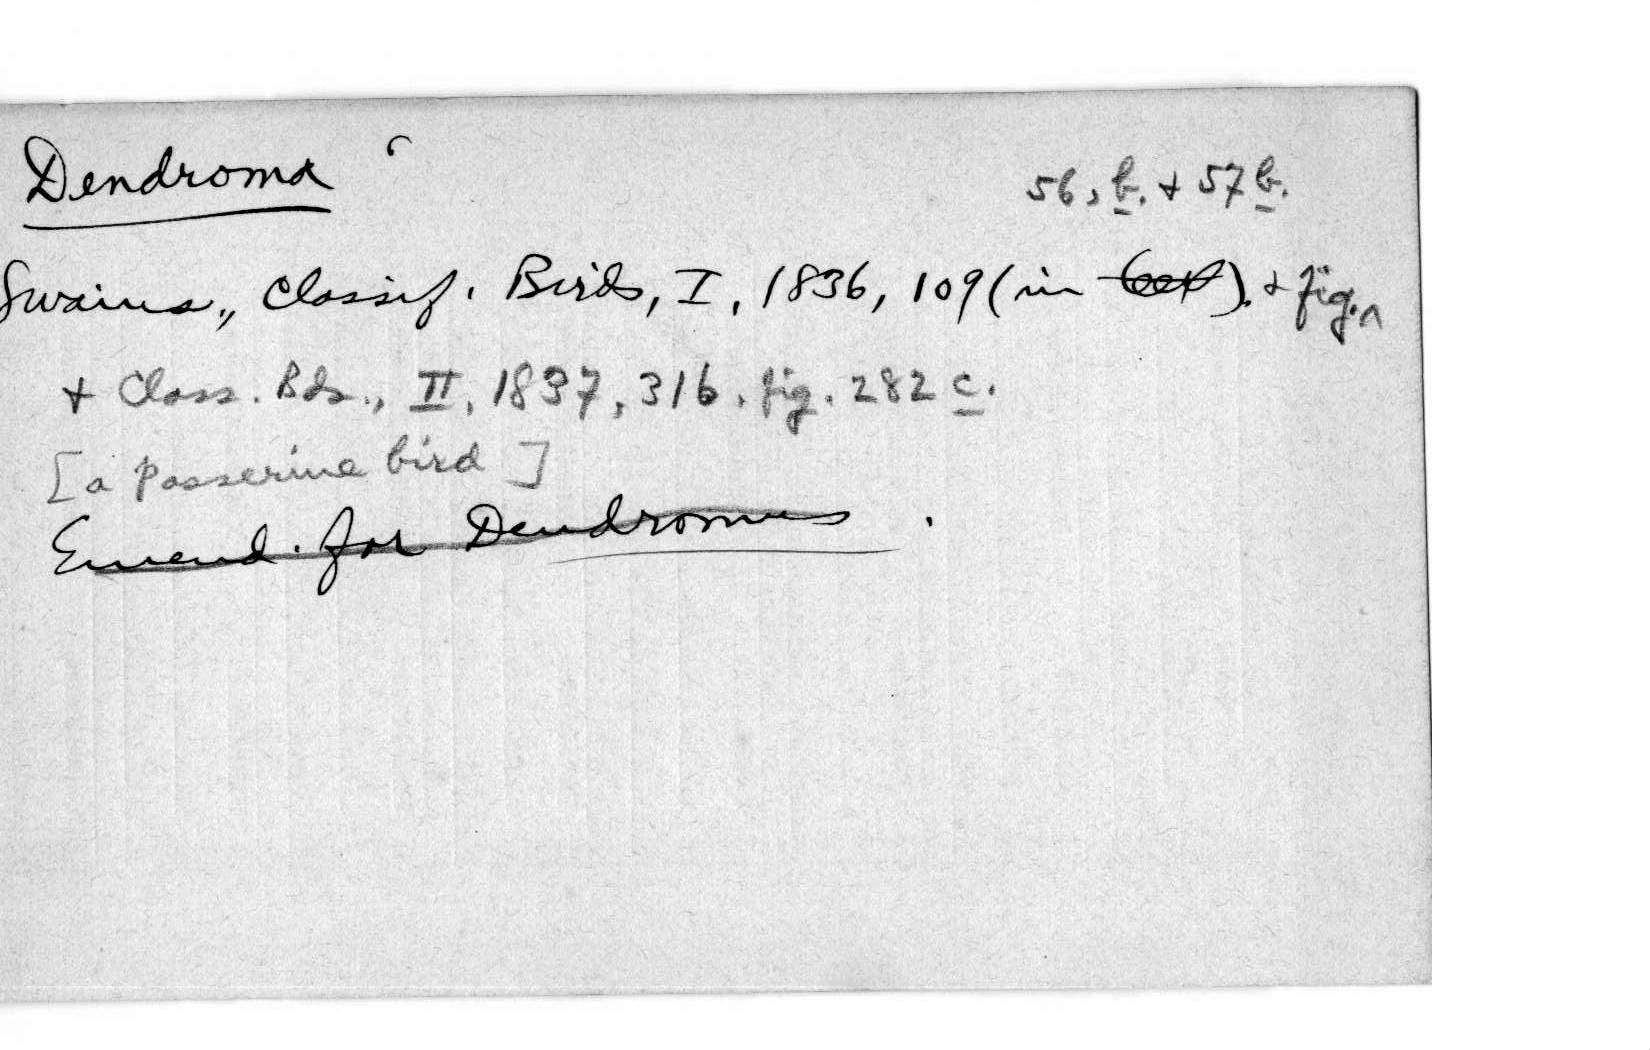 Dendroma
56, b. + 57 b.
Swains., Classif. Birds, I, 1836, 109 (in text). + fig. ^
+ Class. Bds., II, 1837, 316, fig. 282 c.
[a Passerine bird]
Emend. for Dendromus.